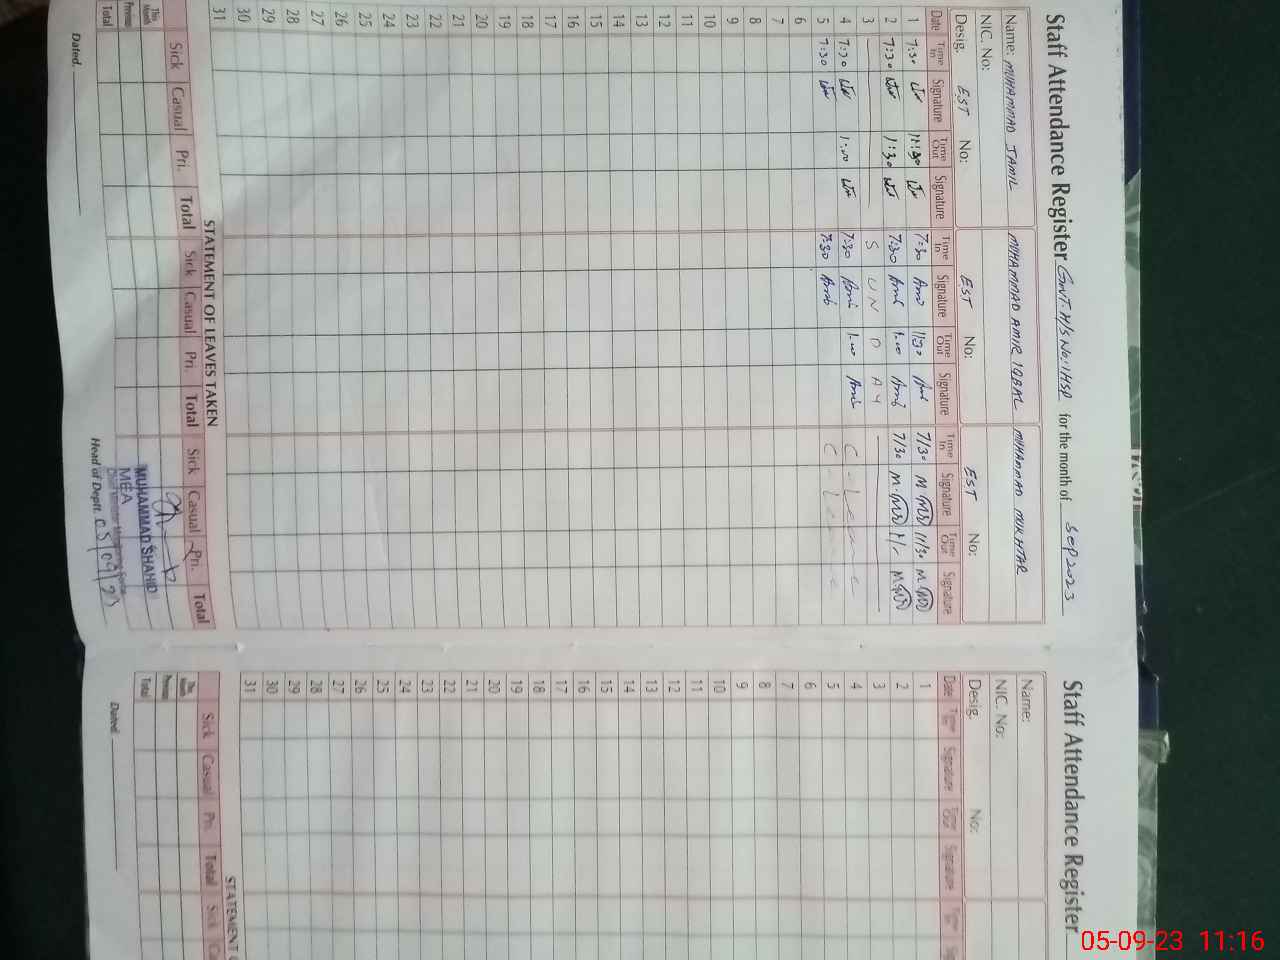 Staff Attendance Register Govt. H/S No: 1 HSP for the month of Sep 2023
Name: MUHAMMAD JAMIL MUHAMMAD AMIR IQBAL MUHAMMAD MUKHTAR
NIC. No:
Desig. EST No: EST No: EST No:
Date Time In Signature Time Out Signature Time In Signature Time Out Signature Time In Signature Time Out Signature
1 7:30 11:30 7:30 11:30 7/30 11/30
2 7:30 1:30 7:30 1:00 7/30
3 S U N D A Y
4 7:30 1:00 7:30 1:00 C - Leave
5 7:30 7:30 C - Leave
6
7
8
9
10
11
12
13
14
15
16
17
18
19
20
21
22
23
24
25
26
27
28
29
30
31
STATEMENT OF LEAVES TAKEN
Sick Casual Pri. Total Sick Casual Pri. Total Sick Casual Pri. Total
This Month
Previous
Total
MUHAMMAD SHAHID
MEA
Dated. Head of Deptt. 05/09/23
Staff Attendance Register
Name:
NIC. No:
Desig. No:
Date Time In Signature Time Out Signature Time
1
2
3
4
5
6
7
8
9
10
11
12
13
14
15
16
17
18
19
20
21
22
23
24
25
26
27
28
29
30
31
STATEMENT
Sick Casual Pri. Total Sick
This Month
Previous
Total
Dated.
05-09-23 11:16